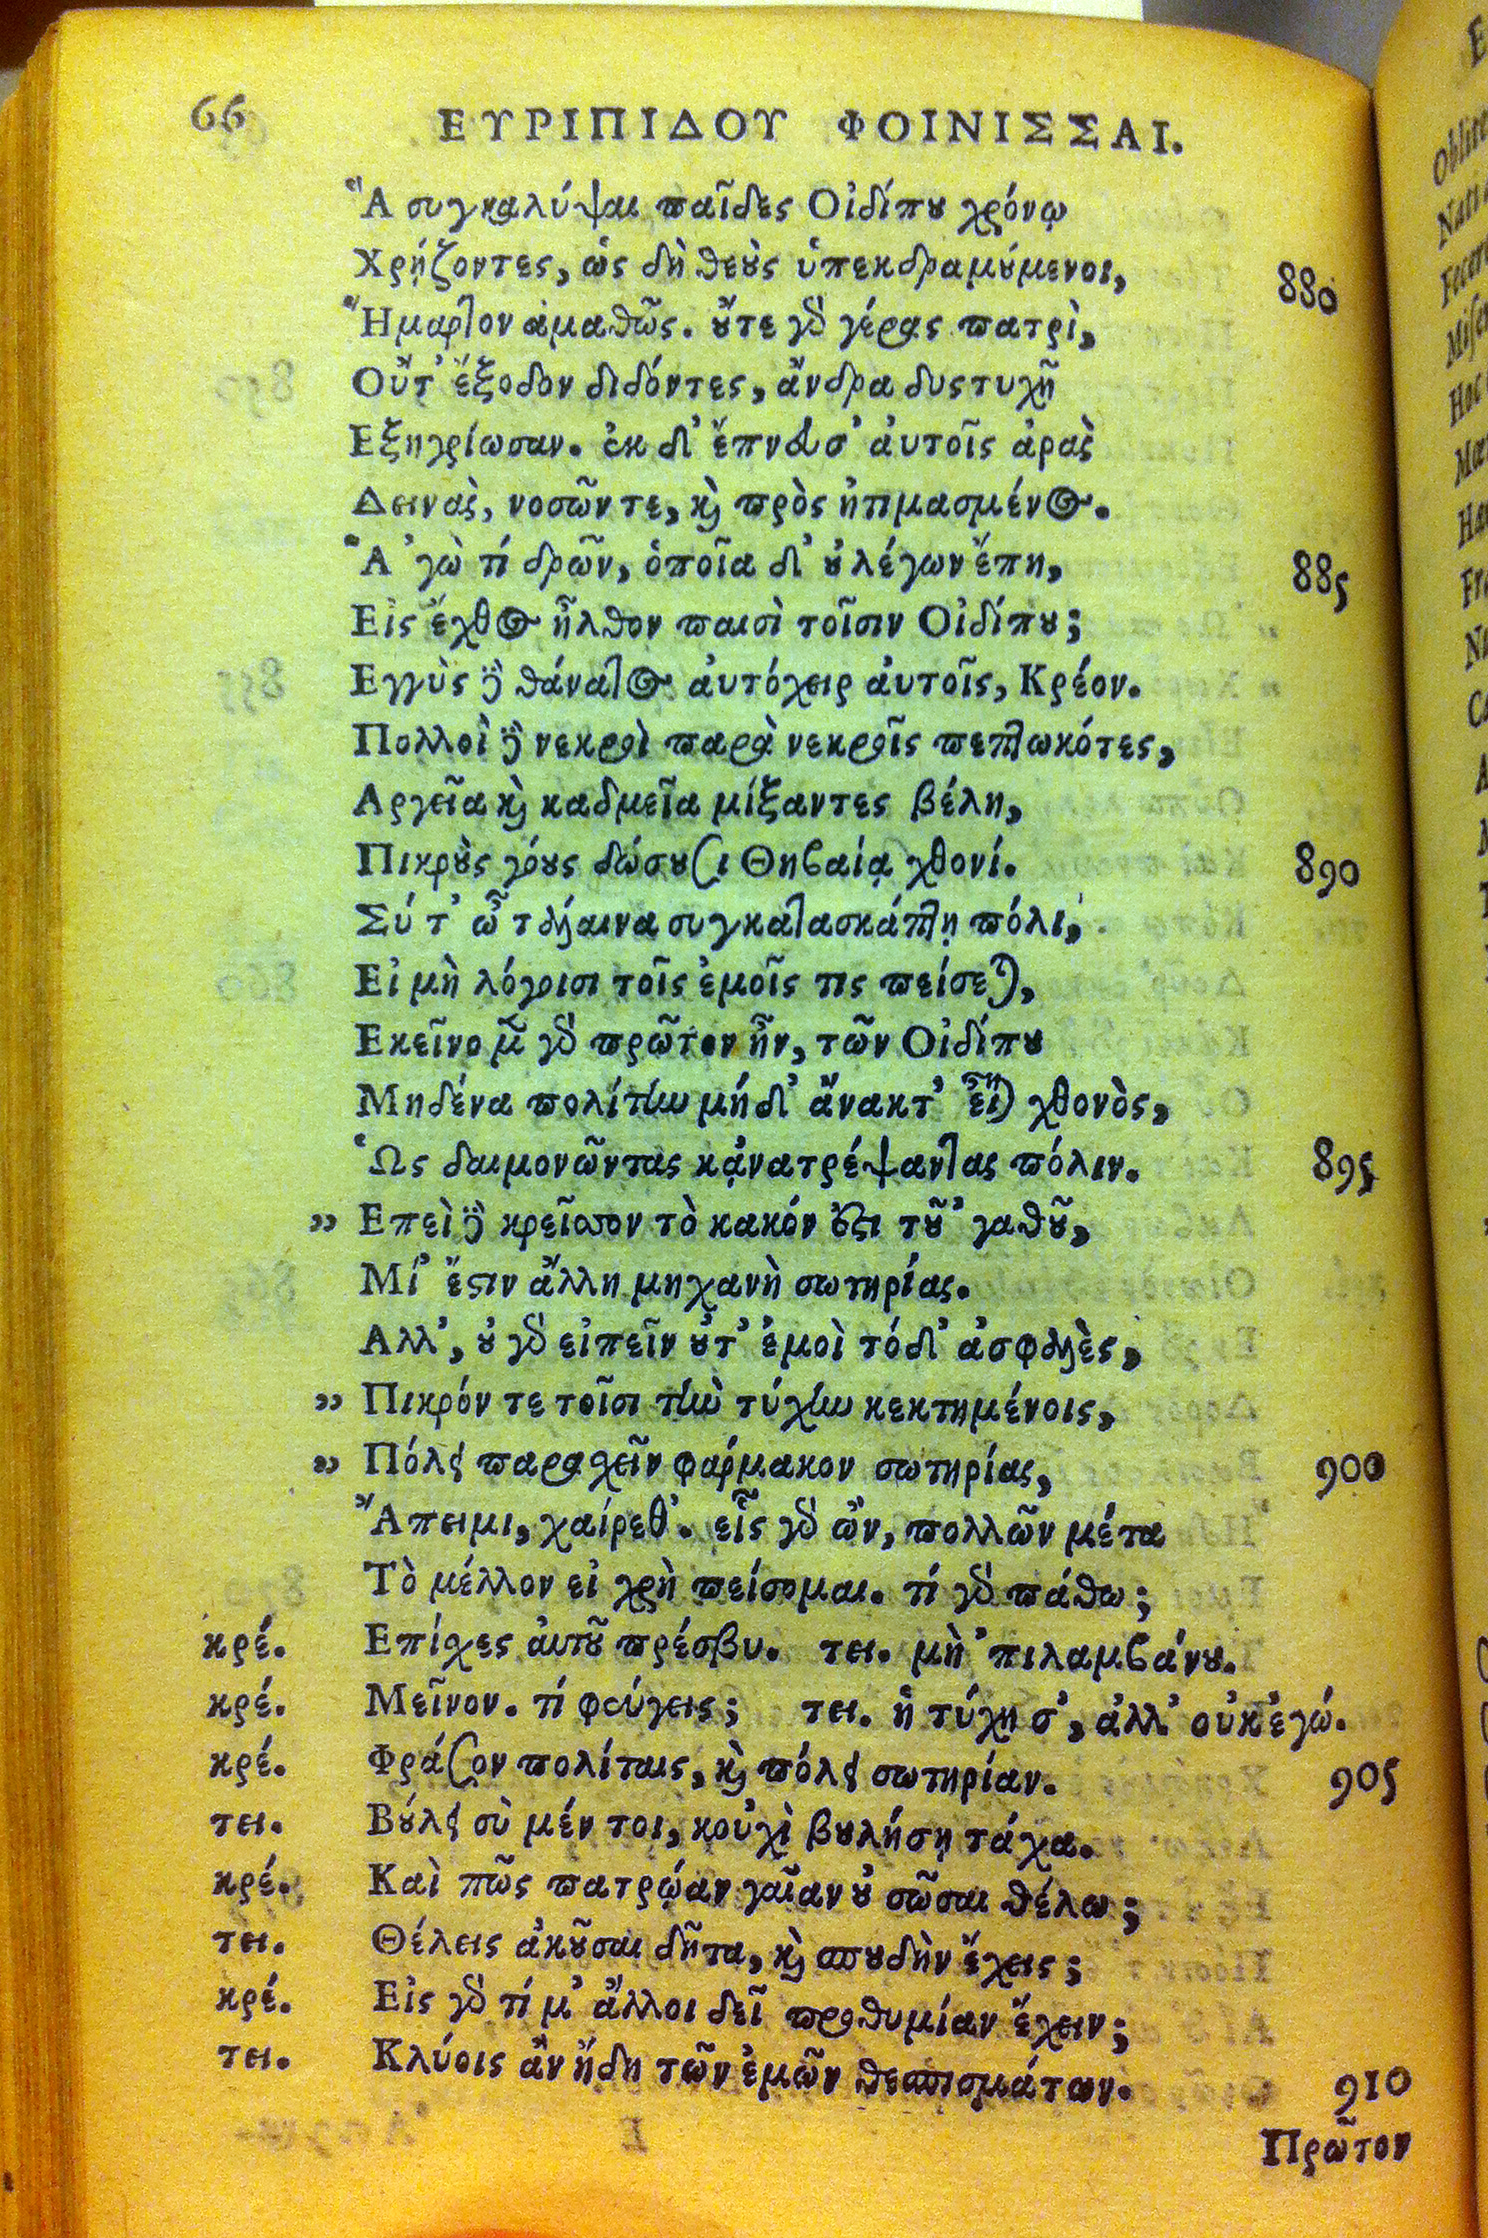 66 ΕΥΡΙΠΙΔΟΥ ΦΟΙΝΙΣΣΑΙ.
Ἃ συγκαλύψαι παῖδες Οἰδίπου χρόνῳ
Χρῄζοντες, ὡς δὴ θεοὺς ὑπεκδραμούμενοι, 880
Ἥμαρτον ἀμαθῶς. οὔτε γὰρ γέρας πατρὶ,
Οὔτ' ἔξοδον διδόντες, ἄνδρα δυστυχῆ
Εξηγρίωσαν. ἐκ δ' ἔπνευσ' αὐτοῖς ἀρὰς
Δεινὰς, νοσῶν τε, καὶ πρὸς ἠτιμασμένος.
Ἃ 'γὼ τί δρῶν, ὁποῖα δ' οὐ λέγων ἔπη, 885
Εἰς ἔχθος ἦλθον παισὶ τοῖσιν Οἰδίπου;
Εγγὺς δὲ θάνατος αὐτόχειρ αὐτοῖς, Κρέον.
Πολλοὶ δὲ νεκροὶ παρὰ νεκροῖς πεπτωκότες,
Αργεῖα καὶ καδμεῖα μίξαντες βέλη,
Πικροὺς γόους δώσουσι Θηβαίᾳ χθονί. 890
Σύ τ' ὦ τάλαινα συγκατασκάπτῃ πόλι,
Εἰ μὴ λόγοισι τοῖς ἐμοῖς τις πείσεται,
Εκεῖνο μὲν γὰρ πρῶτον ἦν, τῶν Οἰδίπου
Μηδένα πολίτην μήδ' ἄνακτ' εἶναι χθονὸς,
Ὡς δαιμονῶντας κᾀνατρέψαντας πόλιν. 895
„ Επεὶ δὲ κρεῖσσον τὸ κακόν ἐστι τοῦ 'γαθοῦ,
Μί' ἔστιν ἄλλη μηχανὴ σωτηρίας.
Αλλ', οὐ γὰρ εἰπεῖν οὔτ' ἐμοὶ τόδ' ἀσφαλὲς,
„ Πικρόν τε τοῖσι τὴν τύχην κεκτημένοις,
„ Πόλει παρασχεῖν φάρμακον σωτηρίας, 900
Ἄπειμι, χαίρεθ'. εἷς γὰρ ὢν, πολλῶν μέτα
Τὸ μέλλον εἰ χρὴ πείσομαι. τί γὰρ πάθω;
κρέ. Επίσχες αὐτοῦ πρέσβυ. τει. μὴ 'πιλαμβάνου.
κρέ. Μεῖνον. τί φεύγεις; τει. ἡ τύχη σ', ἀλλ' οὐκ ἐγώ.
κρέ. Φράσον πολίταις, καὶ πόλει σωτηρίαν. 905
τει. Βούλει σὺ μέν τοι, κοὐχὶ βουλήσῃ τάχα.
κρέ. Καὶ πῶς πατρῴαν γαῖαν οὐ σῶσαι θέλω;
τει. Θέλεις ἀκοῦσαι δῆτα, καὶ σπουδὴν ἔχεις;
κρέ. Εἰς γὰρ τί μ' ἄλλοι δεῖ προθυμίαν ἔχειν;
τει. Κλύοις ἂν ἤδη τῶν ἐμῶν θεσπισμάτων. 910
Πρῶτον